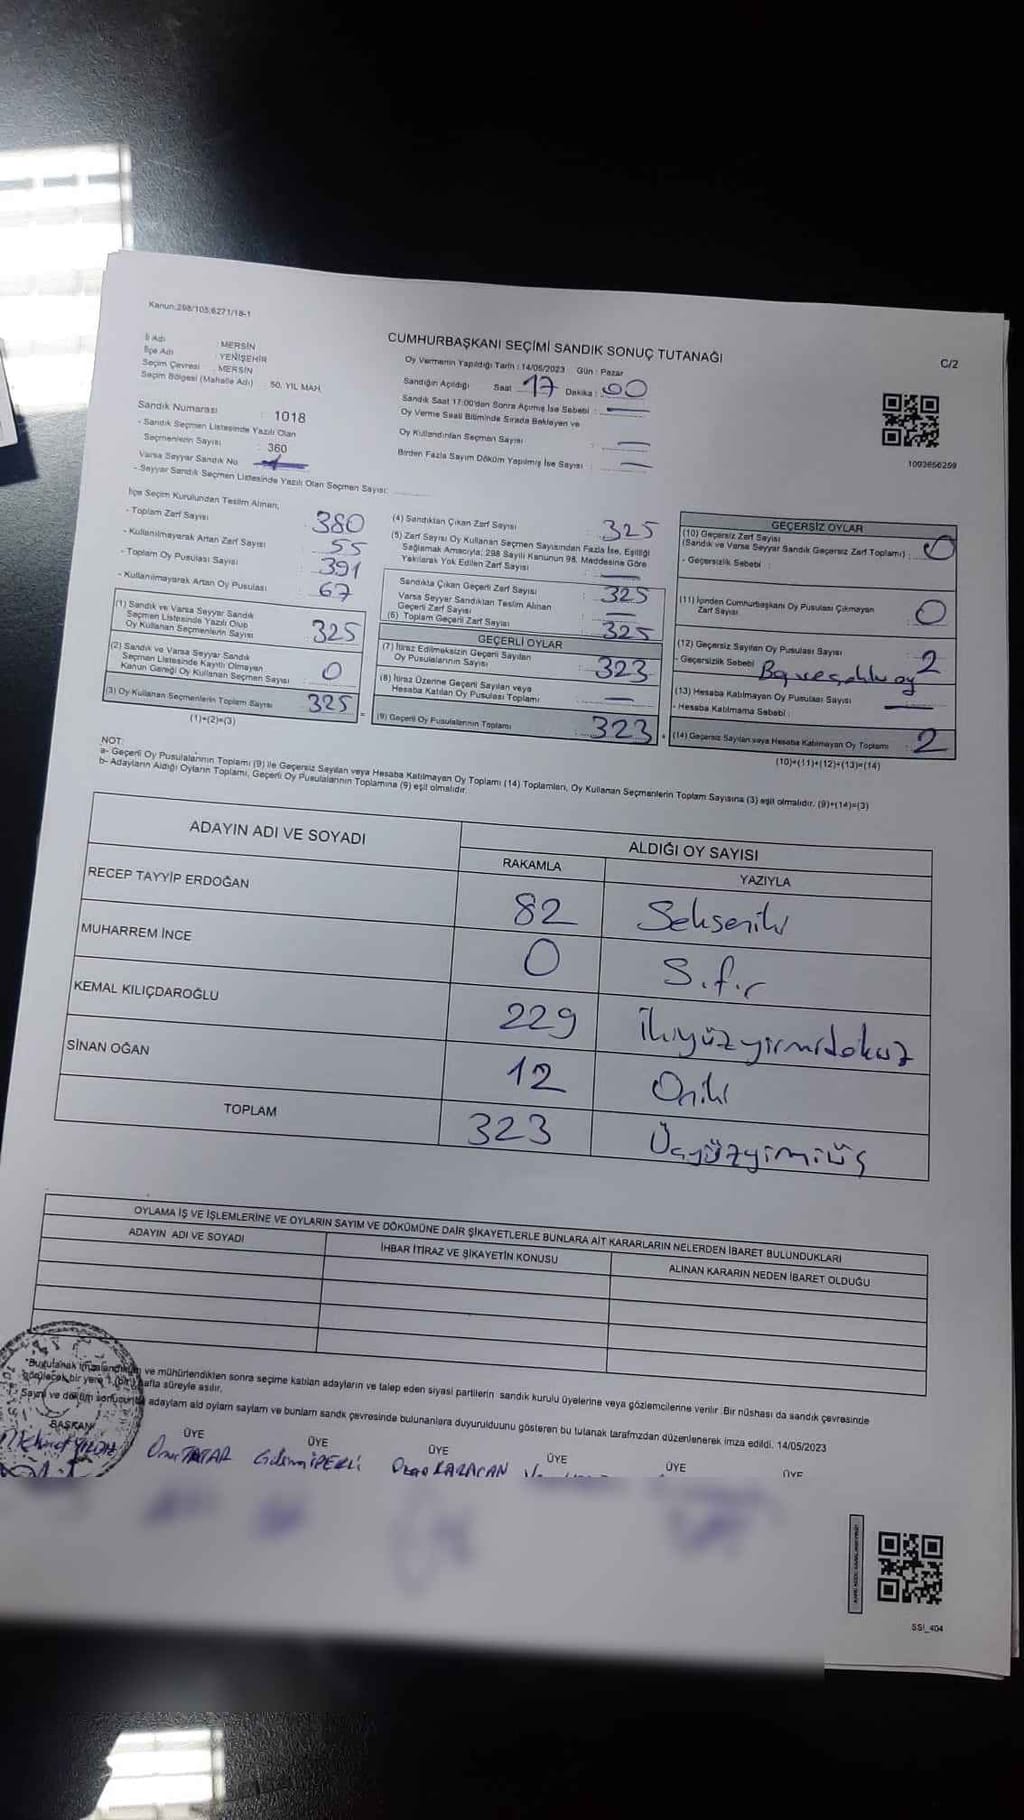 Kanun:298/105;6271/18-1
CUMHURBAŞKANI SEÇİMİ SANDIK SONUÇ TUTANAĞI
C/2
İl Adı : MERSİN
İlçe Adı : YENİŞEHİR
Seçim Çevresi : MERSİN
Seçim Bölgesi (Mahalle Adı) 50. YIL MAH.
Oy Vermenin Yapıldığı Tarih : 14/05/2023 Gün : Pazar
Sandığın Açıldığı Saat : 17 Dakika : 00
Sandık Saat 17:00'dan Sonra Açılmış İse Sebebi : —
Oy Verme Saati Bitiminde Sırada Bekleyen ve
Oy Kullandırılan Seçmen Sayısı : —
Birden Fazla Sayım Döküm Yapılmış İse Sayısı : —
1093656259
Sandık Numarası : 1018
- Sandık Seçmen Listesinde Yazılı Olan
Seçmenlerin Sayısı : 360
Varsa Seyyar Sandık No
- Seyyar Sandık Seçmen Listesinde Yazılı Olan Seçmen Sayısı:
İlçe Seçim Kurulundan Teslim Alınan,
- Toplam Zarf Sayısı 380
- Kullanılmayarak Artan Zarf Sayısı 55
- Toplam Oy Pusulası Sayısı 391
- Kullanılmayarak Artan Oy Pusulası 67
(1) Sandık ve Varsa Seyyar Sandık
Seçmen Listesinde Yazılı Olup
Oy Kullanan Seçmenlerin Sayısı 325
(2) Sandık ve Varsa Seyyar Sandık
Seçmen Listesinde Kayıtlı Olmayan
Kanun Gereği Oy Kullanan Seçmen Sayısı 0
(3) Oy Kullanan Seçmenlerin Toplam Sayısı 325
(1)+(2)=(3)
(4) Sandıktan Çıkan Zarf Sayısı : 325
(5) Zarf Sayısı Oy Kullanan Seçmen Sayısından Fazla İse, Eşitliği
Sağlamak Amacıyla, 298 Sayılı Kanunun 98. Maddesine Göre
Yakılarak Yok Edilen Zarf Sayısı : —
Sandıkta Çıkan Geçerli Zarf Sayısı : 325
Varsa Seyyar Sandıktan Teslim Alınan
Geçerli Zarf Sayısı : —
(6) Toplam Geçerli Zarf Sayısı : 325
GEÇERLİ OYLAR
(7) İtiraz Edilmeksizin Geçerli Sayılan
Oy Pusulalarının Sayısı : 323
(8) İtiraz Üzerine Geçerli Sayılan veya
Hesaba Katılan Oy Pusulası Toplamı : —
(9) Geçerli Oy Pusulalarının Toplamı : 323
GEÇERSİZ OYLAR
(10) Geçersiz Zarf Sayısı
(Sandık ve Varsa Seyyar Sandık Geçersiz Zarf Toplamı) : 0
- Geçersizlik Sebebi :
(11) İçinden Cumhurbaşkanı Oy Pusulası Çıkmayan
Zarf Sayısı : 0
(12) Geçersiz Sayılan Oy Pusulası Sayısı : 2
- Geçersizlik Sebebi : oy
(13) Hesaba Katılmayan Oy Pusulası Sayısı : —
- Hesaba Katılmama Sebebi :
(14) Geçersiz Sayılan veya Hesaba Katılmayan Oy Toplamı : 2
(10)+(11)+(12)+(13)=(14)
NOT:
a- Geçerli Oy Pusulalarının Toplamı (9) ile Geçersiz Sayılan veya Hesaba Katılmayan Oy Toplamı (14) Toplamları, Oy Kullanan Seçmenlerin Toplam Sayısına (3) eşit olmalıdır. (9)+(14)=(3)
b- Adayların Aldığı Oyların Toplamı, Geçerli Oy Pusulalarının Toplamına (9) eşit olmalıdır.
ADAYIN ADI VE SOYADI
ALDIĞI OY SAYISI
RAKAMLA YAZIYLA
RECEP TAYYİP ERDOĞAN 82 Sekseniki
MUHARREM İNCE 0 Sıfır
KEMAL KILIÇDAROĞLU 229 İkiyüzyirmidokuz
SİNAN OĞAN 12 Oniki
TOPLAM 323 Üçyüzyirmiüç
OYLAMA İŞ VE İŞLEMLERİNE VE OYLARIN SAYIM VE DÖKÜMÜNE DAİR ŞİKAYETLERLE BUNLARA AİT KARARLARIN NELERDEN İBARET BULUNDUKLARI
ADAYIN ADI VE SOYADI İHBAR İTİRAZ VE ŞİKAYETİN KONUSU ALINAN KARARIN NEDEN İBARET OLDUĞU
ve mühürlendikten sonra seçime katılan adayların ve talep eden siyasi partilerin sandık kurulu üyelerine veya gözlemcilerine verilir. Bir nüshası da sandık çevresinde
görülecek bir yere 1 (bir) hafta süreyle asılır.
Sayım ve döküm sonucunda adayların aldı oyların sayıları ve bunların sandık çevresinde bulunanlara duyurulduunu gösteren bu tutanak tarafmzdan düzenlenerek imza edildi. 14/05/2023
BAŞKAN ÜYE ÜYE ÜYE ÜYE ÜYE ÜYE
TATAR
SSI_404